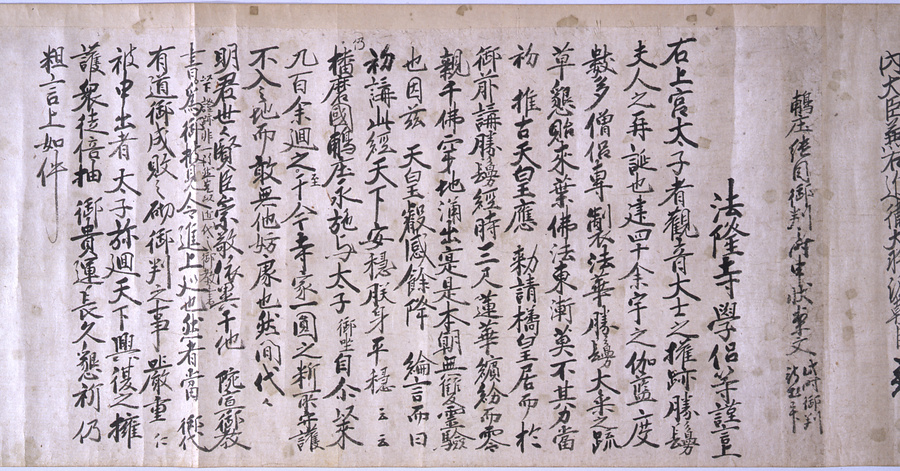 鵤庄絵図御判 申状案文
法隆寺學侶等謹言上
右上宮太子者觀音大士之権跡勝鬘
夫人之再誕也建四十余宇之伽藍度
数多僧侶専製法華勝鬘大乗之疏
草懇貽末葉佛法東漸莫不其力當
初 推古天皇應 勅請橘皇居而於
御前講勝鬘経時三尺蓮華繽紛而零
親千佛穿地涌出寔是本朝無雙霊驗
也因茲 天皇叡感餘降 綸言而曰
初講此経天下安穏朕身平穏云云
仍播磨國鵤庄永施与太子御世自尓以来
九百余廻之至于今寺家一圓之料所守護
不入之地而敢無他妨界也然間代々
明君世々賢臣崇敬依異于他 院宣
為御披見令進上処也然者當 御代
有道御成敗之砌御判之事嚴重仁
被申出者太子弥廻天下興復之擁
護衆徒倍抽 御貴運長久懇祈仍
粗言上如件